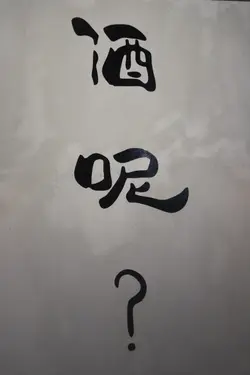 酒呢？